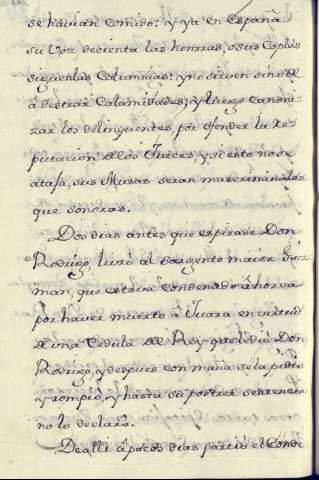 se havian comido; y ya en España
su voz decienta las honras, o sus Coplas
siguenlas Calumnias: y no sirven sino de
adestrar Calamidades, y luego canoni-
zar los delinquentes por ofender la re-
putacion de los Jueces, y si esto no se
ataja, sus Musas seran mas criminales
que sonoras.
Dos dias antes que espirase Don
Rodrigo, libró al sargento maior Guz-
man, que estava condenado á horca
por haver muerto á Juara en virtud
de una Cedula del Rey que le dió Don
Rodrigo, y despues con maña se la pidio
y rompió, y hasta su postrer sentencia
no lo declaró.
De alli á pocos dias partió el Conde